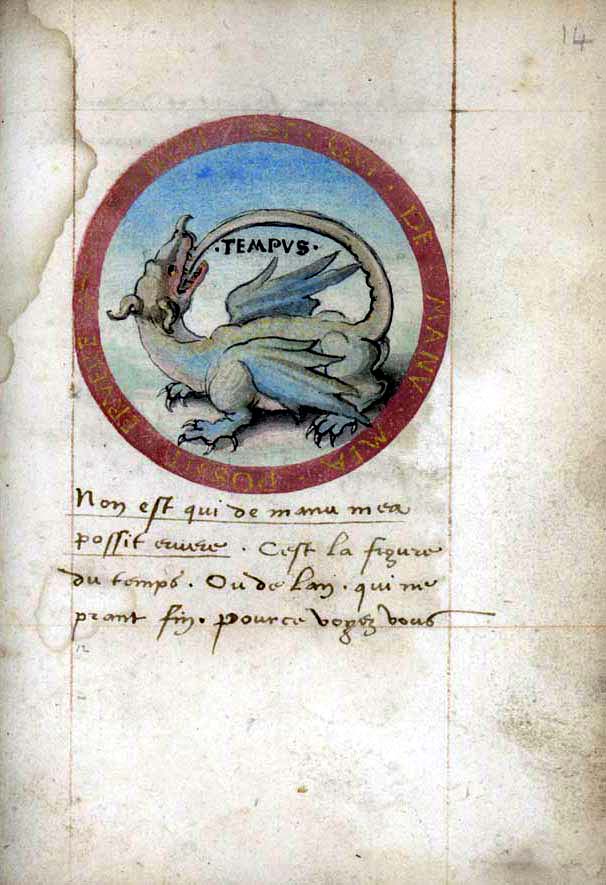 14
EST · QVI · DE · MANV · MIA · POSSIT · ERVERE
·TEMPVS·
Non est qui de manu mea
possit eruere . Cest la figure
du temps . Ou de lan . qui ne
prant fin . Pource voyez vous
12